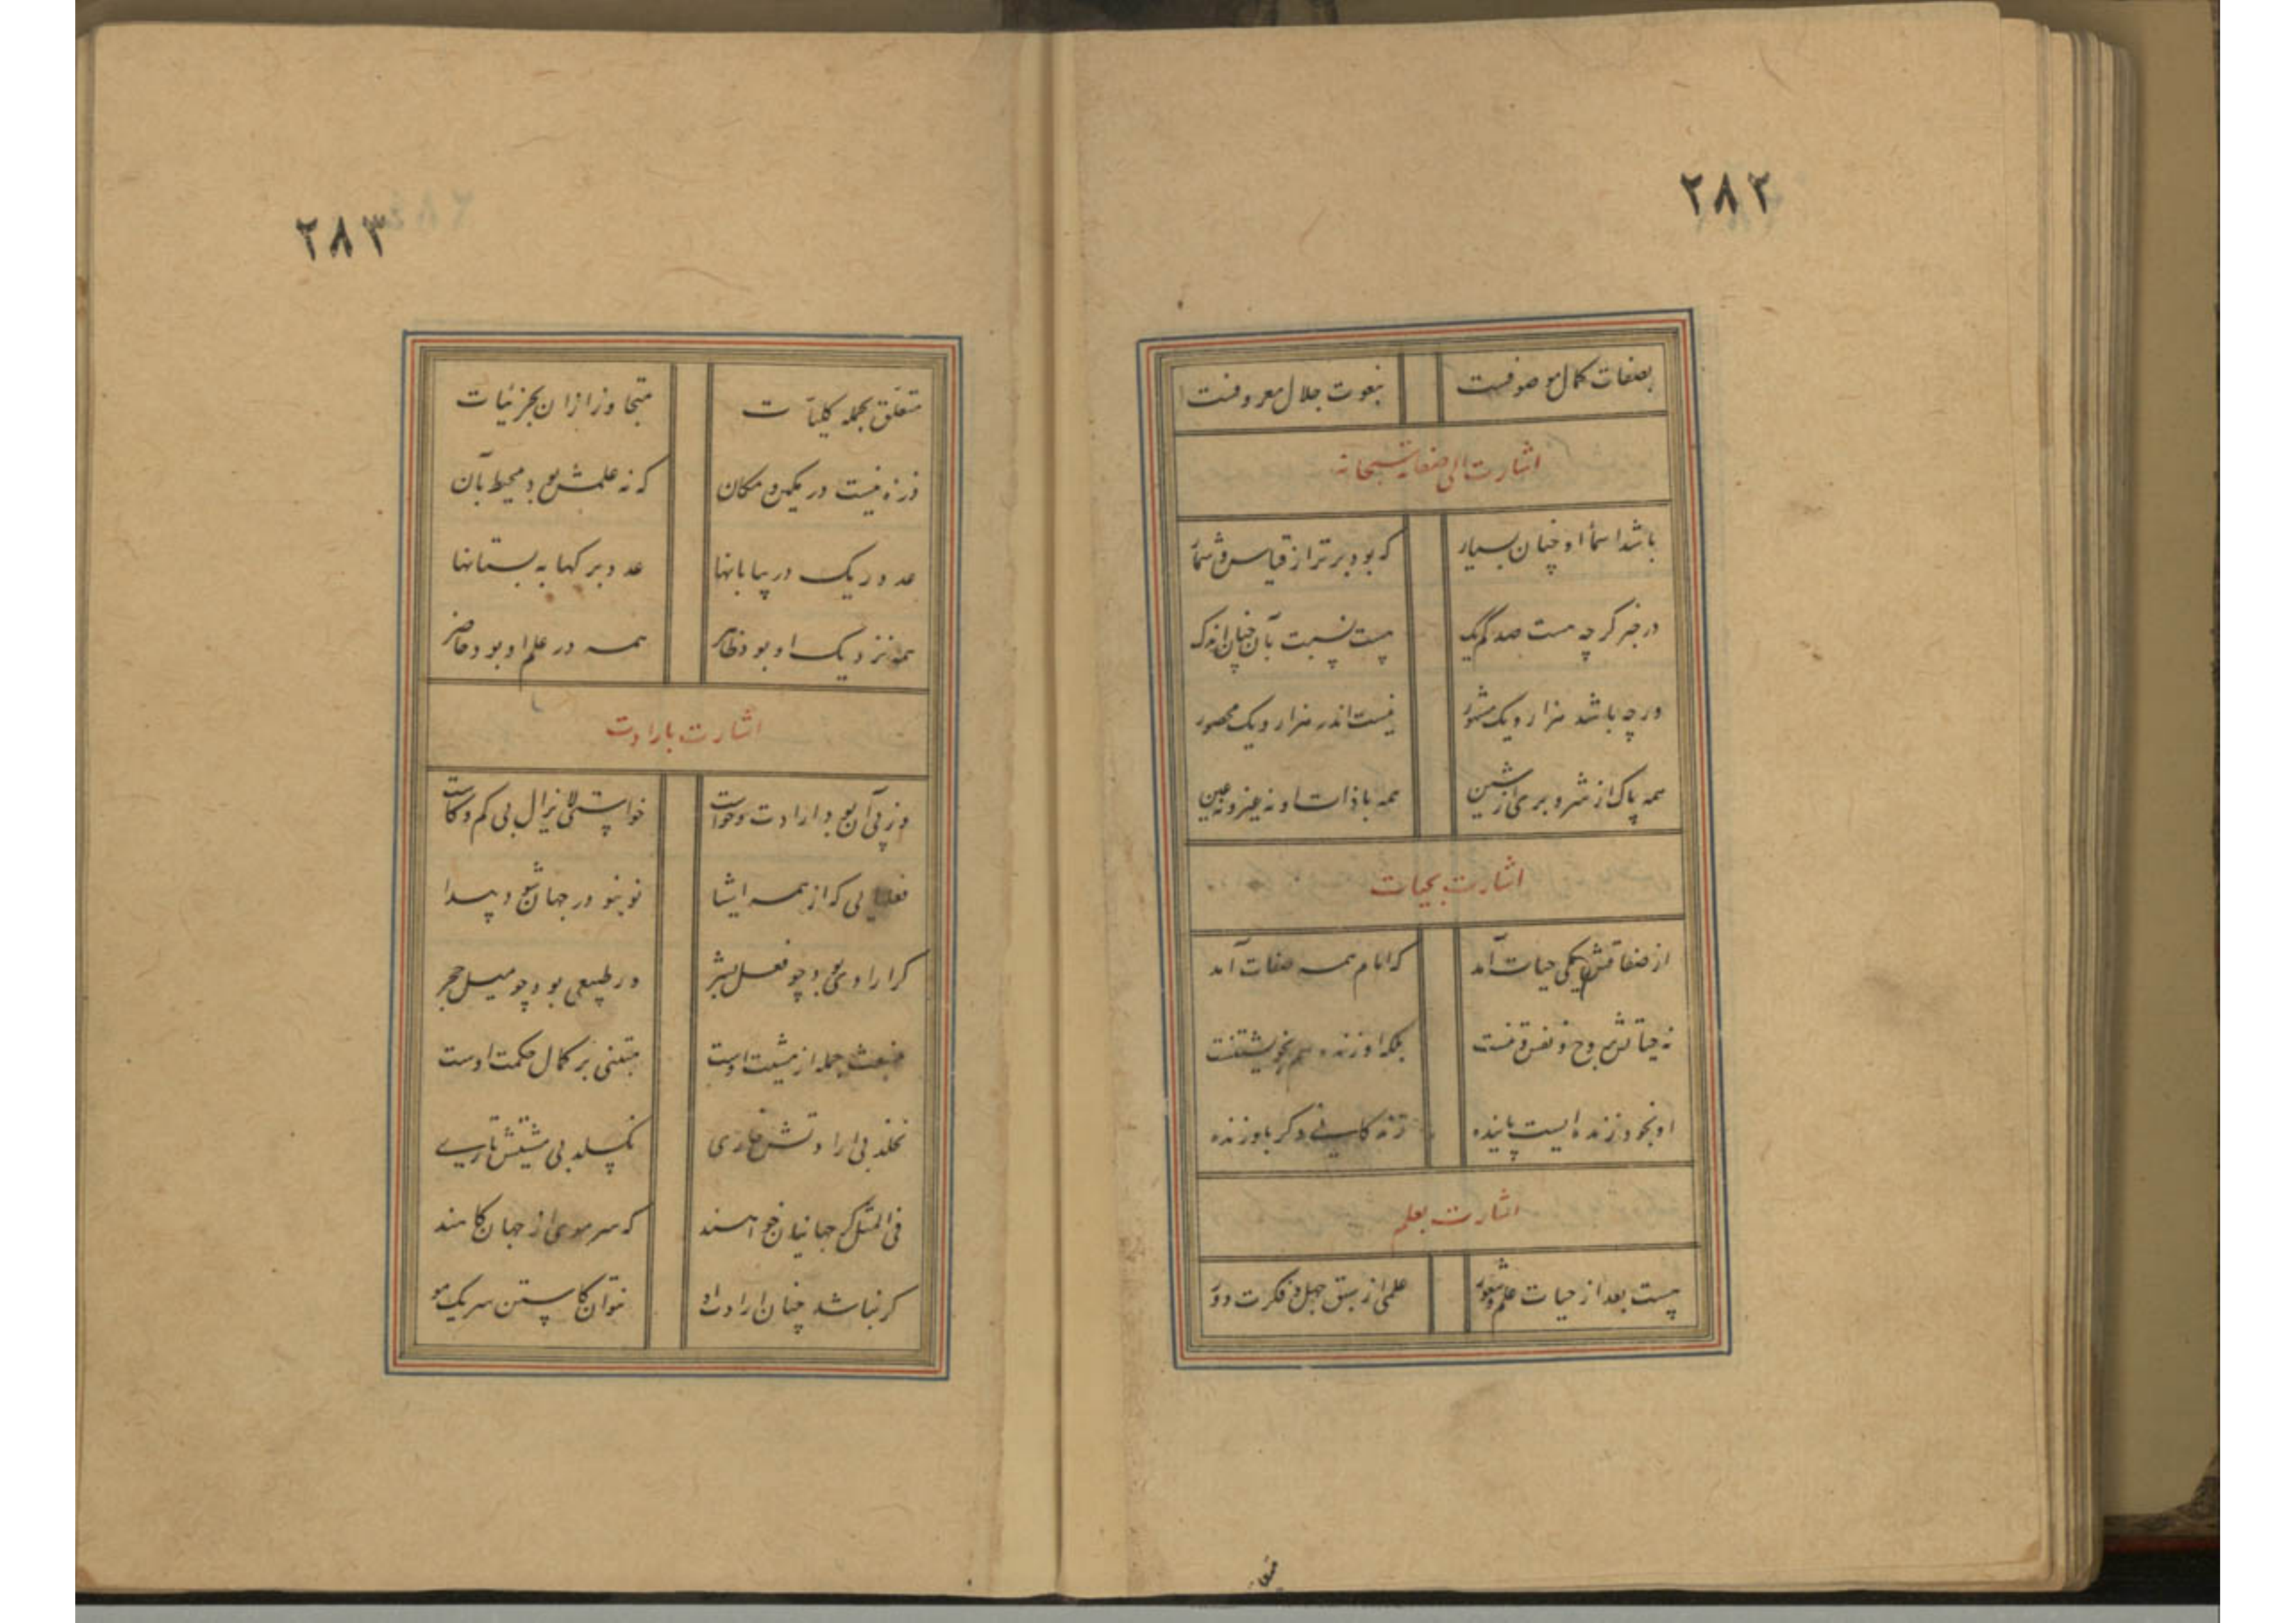 ۲۸۲
بصفات کمال موصوفست بنعوت جلال معروفست
اشارت الی صفاته سبحانه
باشد اسماء او چنان بسیار که بود برتر از قیاس و شمار
در خبر گرچه هست صد کم یک هست نسبت بآن چنان اندک
ورچه باشد هزار و یک مشهور نیست اندر هزار و یک محصور
همه پاک از شر و بری از شین همه با ذات او نه غیر و نه عین
اشارت بحیات
از صفاتش یکی حیات آمد که امام همه صفات آمد
نه حیاتش بروح و نفس و تنست بلکه او زنده هم بخویشتنست
او بخود زنده ایست پاینده زندگانی دگر باو زنده
اشارت بعلم
هست بعد از حیات علم و شعور علمی از سبق جهل و فکرت دور
۲۸۳
متعلق بجمله کلیات متجاوز از آن بجزئیات
ذره نیست در مکین و مکان که نه علمش بود محیط بآن
عدد ریک در بیابانها عدد برکها به بستانها
همه نزدیک او بود ظاهر همه در علم او بود حاضر
اشارت بارادت
وز پی آن بود ارادت و خواست خواستی لایزال بی کم و کاست
فعلهایی که از همه اشیا نو بنو در جهان شود پیدا
کر ارادی بود چو فعل بشر ور طبیعی بود چو میل حجر
منبعث جمله از مشیت اوست مبتنی بر کمال حکمت اوست
نخلد بی ارادتش خاری نکسلد بی مشیتش تاری
فی المثل کر جهانیان خواهند که سر موی از جهان کاهند
کر نباشد چنان ارادت او نتوان کاستن سر یک مو